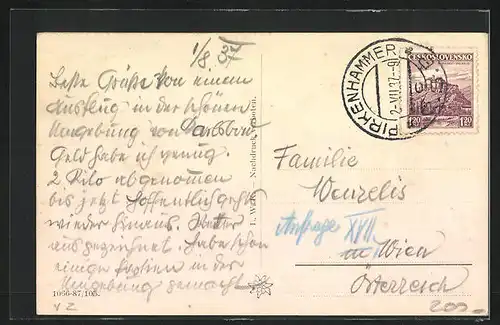 1/8
Beste Grüße von einem
Ausflug in der schönen
Umgebung von Karlsbad
Geld habe ich wenig.
2 Kilo abgenomen
bis jetzt hoffentlich geht's
wieder hinaus. Wetter
ausgezeichnet. habe schon
einige Touren in der
Umgebung gemacht
1066-87/105.
Nachdruck verboten.
PIRKENHAMMER
2-VII.37-9
ČESKOSLOVENSKO
1.20 1.20
Familie
Wenzelis
Anfrage XVII
in Wien
Österreich
200.-